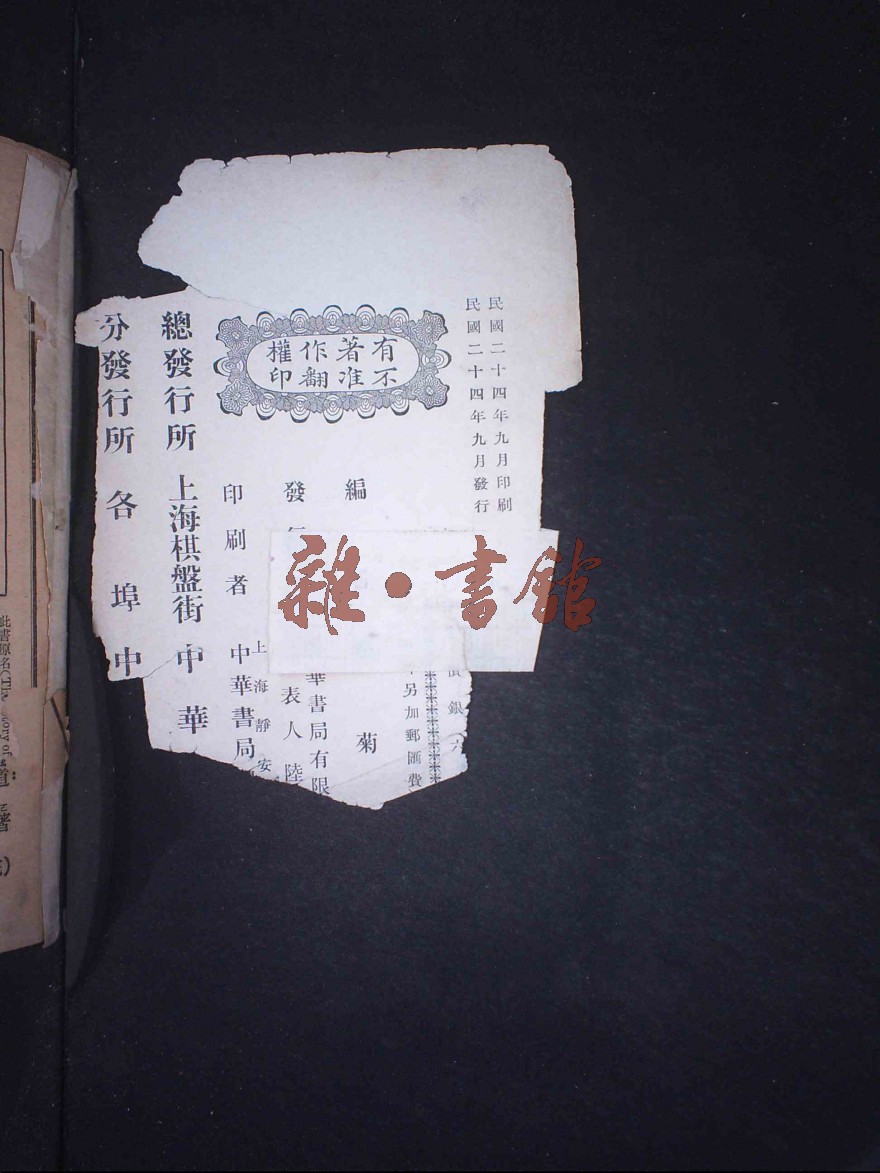 民國二十四年九月印刷
民國二十四年九月發行
價銀(六
另加郵匯費
有著作權
不准翻印
編
菊
發
華書局有限
表人陸
印刷者
上海靜安
中華書局
總發行所 上海棋盤街 中華
分發行所 各埠 中
雜•書館
此書原名